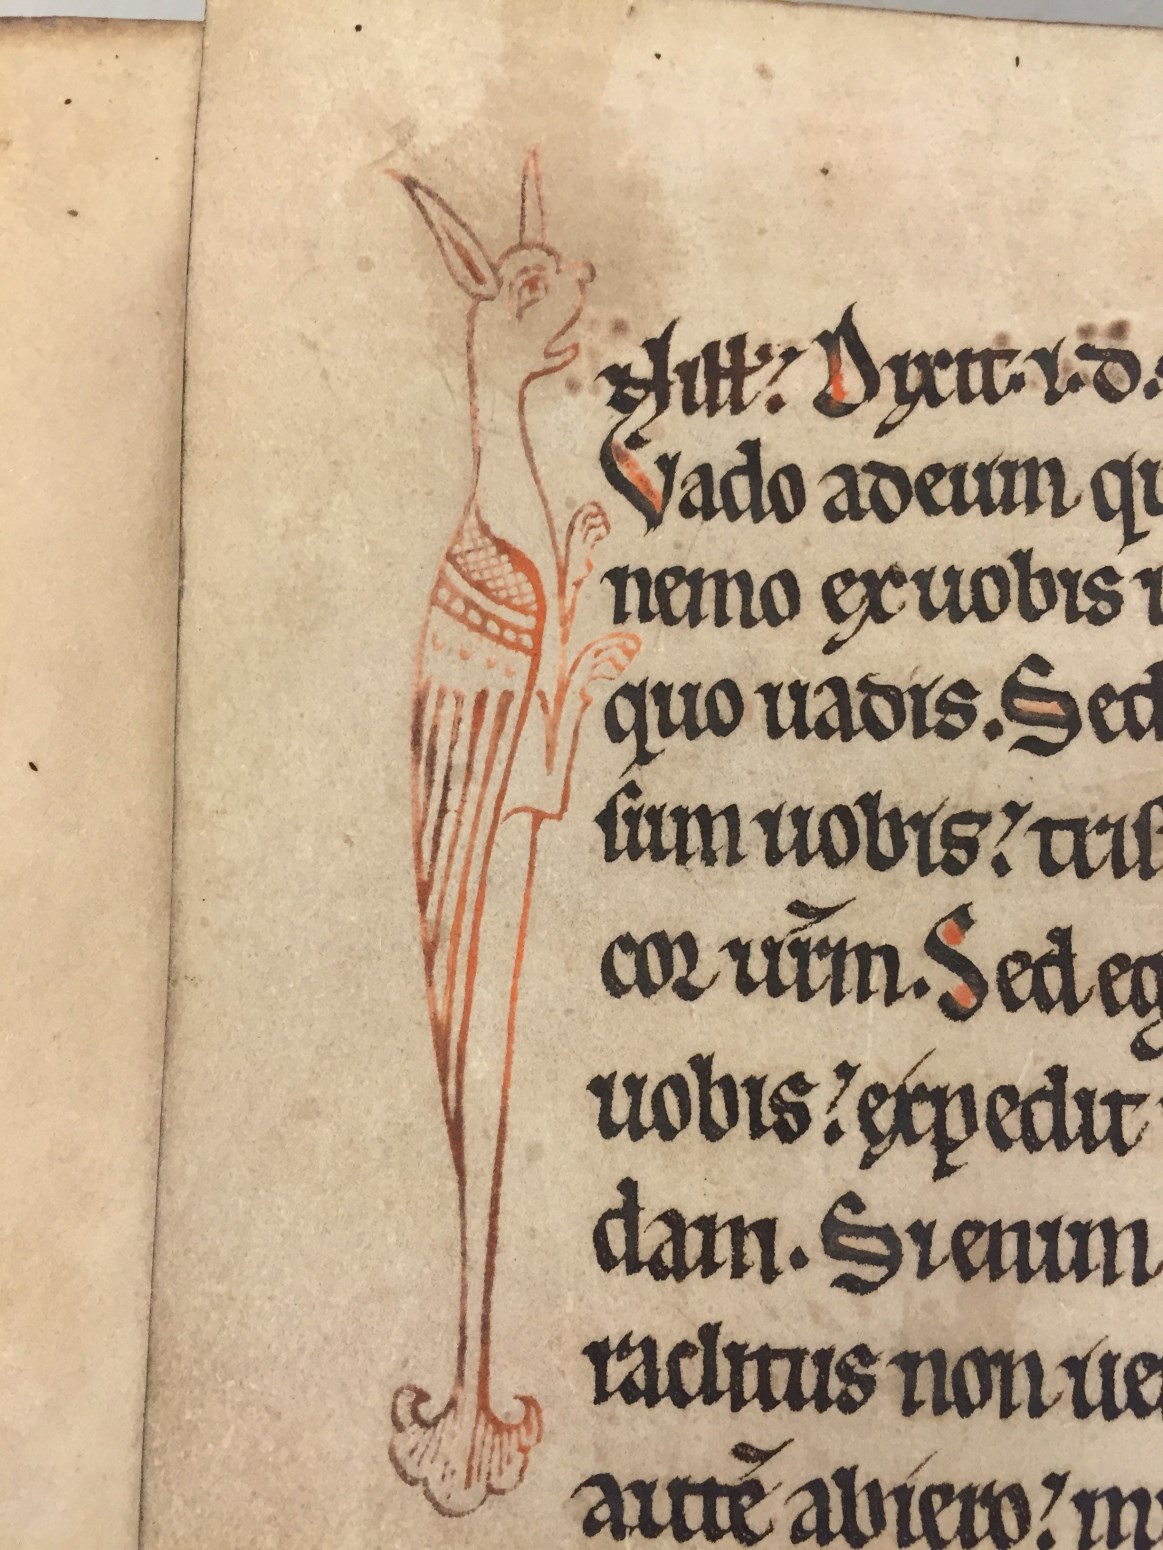 illis. Dixit. i. d. s
Vado adeum qu
nemo ex uobis i
quo uadis. Sed
sum uobis? tris
cor ur̄m. Sed eg
uobis? expedit
dam. Si enim
raclitus non ue
autē abiero? m